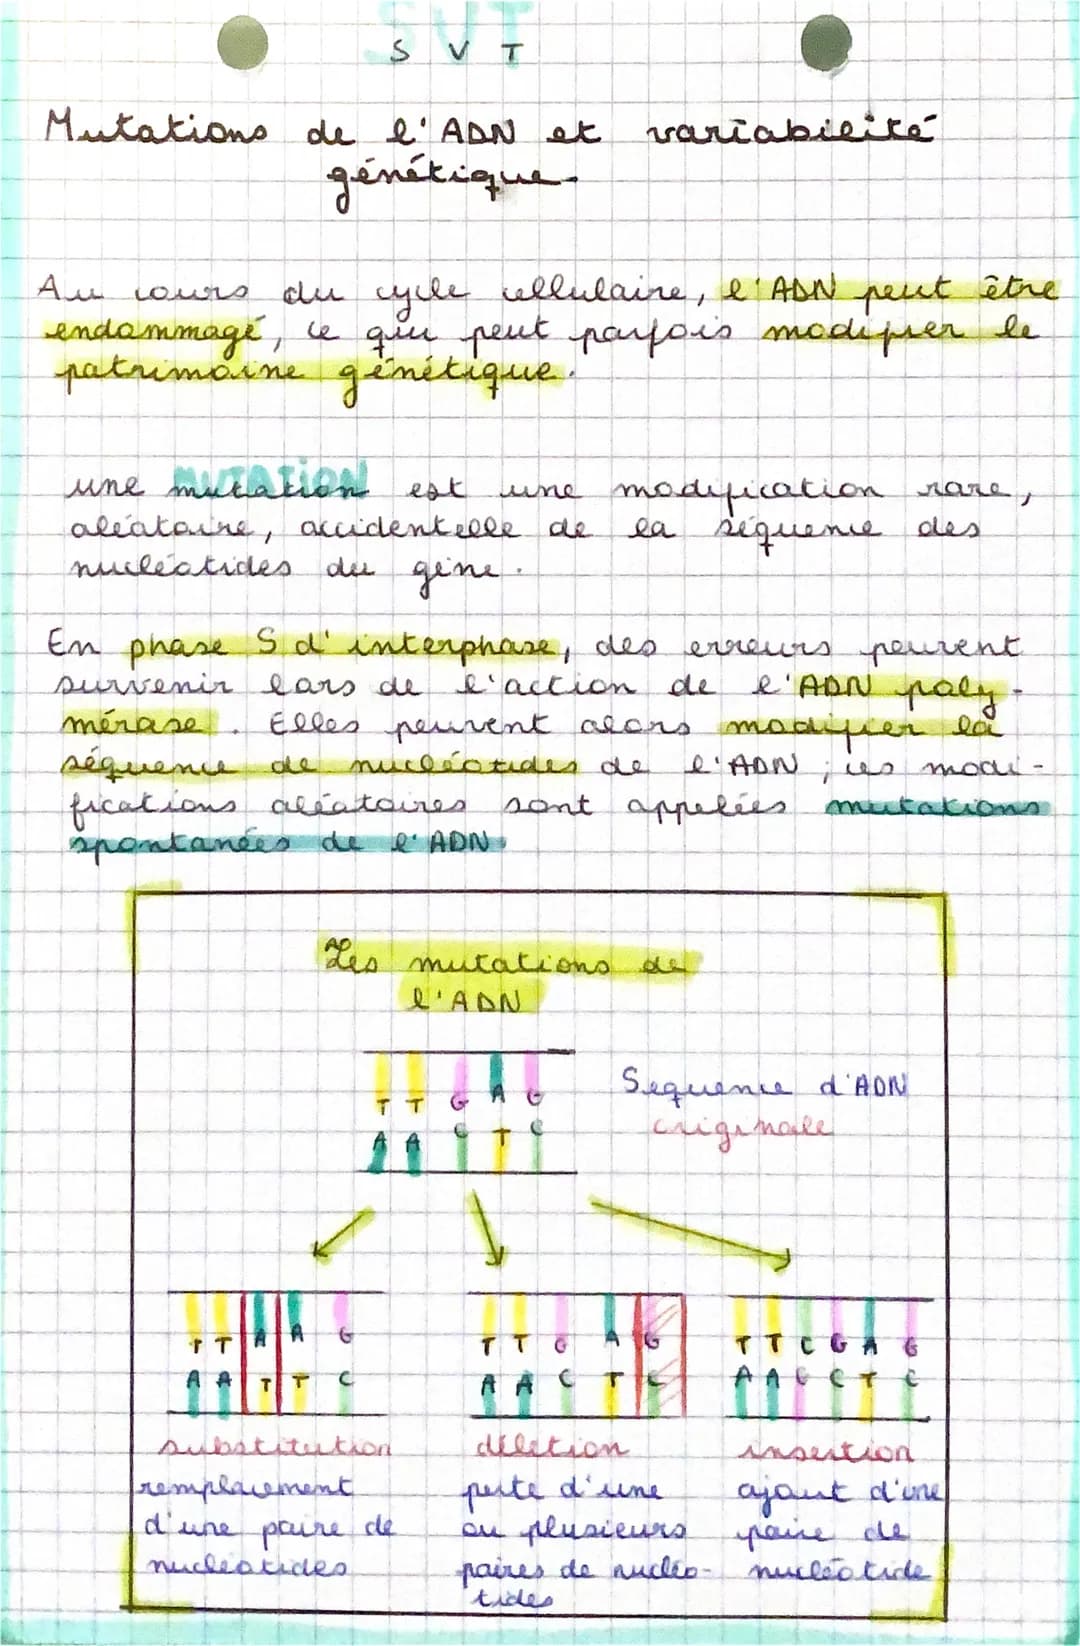 S V T
Mutations de l'ADN et variabilité
génétique.
Au cours du cycle cellulaire, l'ADN peut être
endommagé, ce qui peut parfois modifier le
patrimoine génétique.
MUTATION
une mutation est une modification rare,
aléatoire, accidentelle de la séquence des
nucléotides du gène.
En phase S d'interphase, des erreurs peuvent
survenir lors de l'action de l'ADN poly-
mérase. Elles peuvent alors modifier la
séquence de nucléotides de l'ADN ; ces modi-
fications aléatoires sont appelées mutations
spontanées de l'ADN.
Les mutations de
l'ADN
T T G A G
A A C T C
Séquence d'ADN
originale
T T A A G
A A T T C
T T G A G
A A C T C
T T C G A G
A A G C T C
substitution
remplacement
d'une paire de
nucléotides
délétion
perte d'une
ou plusieurs
paires de nucléo-
tides
insertion
ajout d'une
paire de
nucléotide